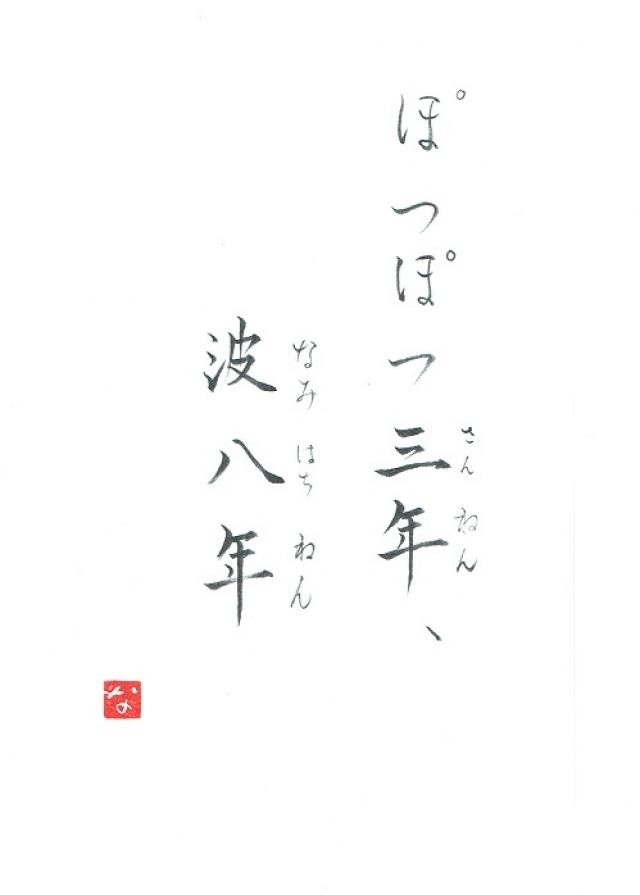 ぽつぽつ三年、
さんねん
波八年
なみはちねん
な